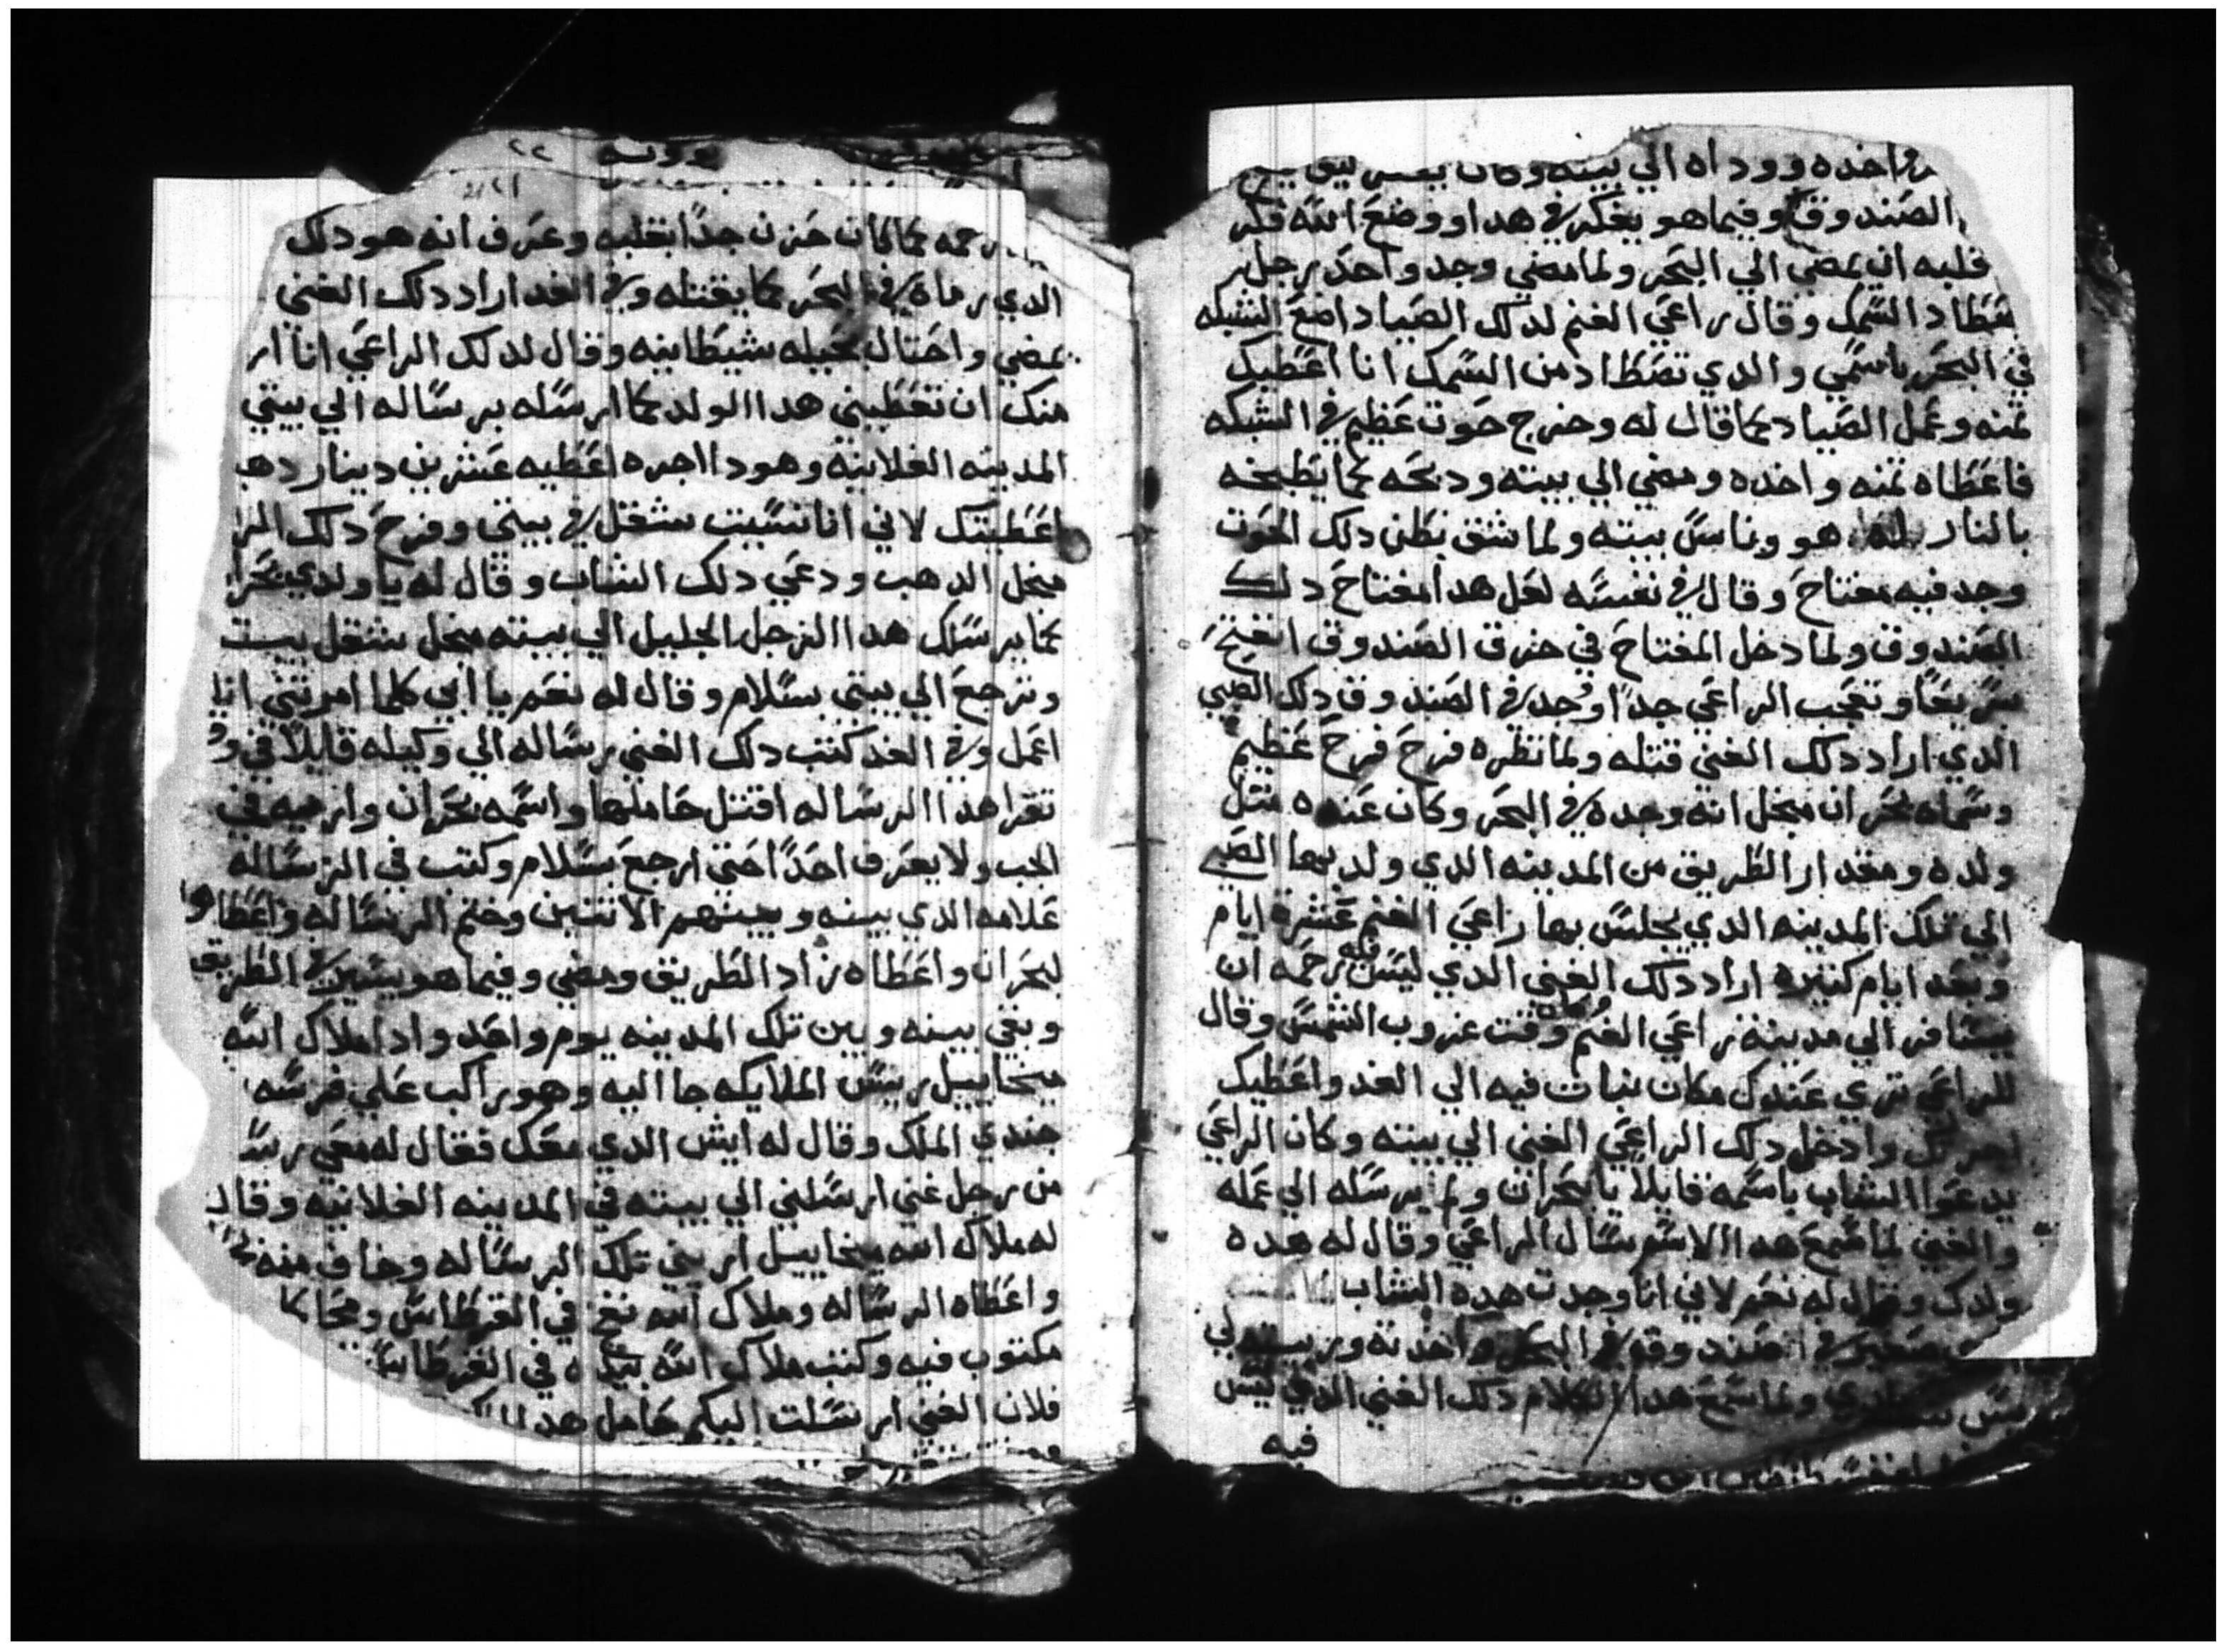 واخده ووداه الي بيته وكان
الصندوق وفيما هو يفكر في هدا ووضع الله فكر
قلبه ان يمضي الي البحر ولما مضي وجد واحد رجل
يتصطاد السمك وقال راعي الغنم لدلك الصياد اضع الشبكه
في البحر باسمي والدي تصطاد من السمك انا اعطيك
تمنه وعمل الصياد كما قال له وخرج حوت عظيم في الشبكه
فاعطاه تمنه واخده ومضي الي بيته ودبحه كما يطبخه
بالنار له هو وناس بيته ولما شق بطن دلك الحوت
وجد فيه مفتاح وقال في نفسه لعل هدا مفتاح دلك
الصندوق ولما دخل المفتاح في خرق الصندوق انفتح
سريعاً وتعجب الراعي جداً وجد في الصندوق دلك الصبي
الدي اراد دلك الغني قتله ولما نظره فرح فرح عظيم
وسماه بحران مبخل انه وجده في البحر وكان عنده متل
ولده ومقدار الطريق من المدينه الدي ولد بها الصبي
الي تلك المدينه الدي يجلس بها راعي الغنم عشرة ايام
وبعد ايام كتيره اراد دلك الغني الدي ليس فيه رحمه ان
يسافر الي مدينة راعي الغنم وكان وقت غروب الشمس وقال
للراعي تري عندك مكان نبات فيه الي الغد واعطيك
اجرتك وادخل دلك الراعي الغني الي بيته وكان الراعي
يدعوا الشاب باسمه قايلا يا بحران ولم يرسله الي عمله
والغني لما سمع هدا الاسم سال الراعي وقال له هده
ولدك وقال له نعم لاني انا وجدت هده الشاب
صغير في صندوقه في البحر واخدته وربيته لي
ولما سمع هدا الكلام دلك الغني الدي ليس
فيه
٢٢
رحمه كما كان حزن جداً بقلبه وعرف انه هو دلك
الدي رماه في البحر كما يقتله وفي الغد اراد دلك الغني
يمضي واحتال بحيله شيطانيه وقال لدلك الراعي انا ار
منك ان تعطيني هدا الولد كما ارسله برساله الي بيتي
المدينه الفلانيه وهودا اجره اعطيه عشرين دينار دهب
اعطيتك لاني انا نسيت شغل في بيتي وفرح دلك الرا
مبخل الدهب ودعي دلك الشاب وقال له يا ولدي بحرا
كما يرسلك هدا الرجل الجليل الي بيته مبخل شغل بيت
وترجع الي بيتي بسلام وقال له نعم يا ابي كلما امرتني انا
اعمل وفي الغد كتب دلك الغني رساله الي وكيله قايلا في و
تقرا هدا الرساله اقتل حاملها واسمه بحران وارميه في
الجب ولا يعرف احداً حتي ارجع بسلام وكتب في الرساله
علامه الدي بينه وبينهم الاتنين وختم الرساله واعطاها
لبحران واعطاه زاد الطريق ومضي وفيما هو يسير في الطريق
وبقي بينه وبين تلك المدينه يوم واحد وادا ملاك الله
ميخاييل رييس الملايكه جا اليه وهو راكب علي فرسه
جندي الملك وقال له ايش الدي معك فقال له معي رسا
من رجل غني ارسلني الي بيته في المدينه الفلانيه وقال
له ملاك الله ميخاييل اريني تلك الرساله وخاف منه
واعطاه الرساله وملاك الله نفخ في القرطاس ومحا ما
مكتوب فيه وكتب ملاك الله بيده في القرطاس
فلان الغني ارسلت اليكم حامل هدا